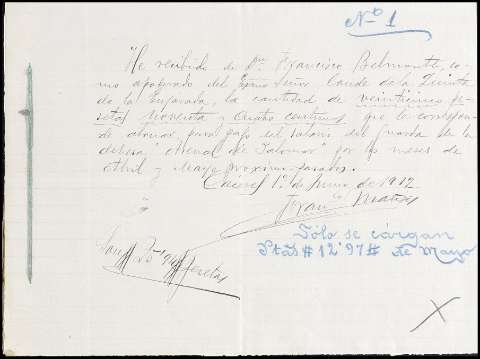 Nº 1
He recibido de Dn Francisco Belmonte, co-
mo apoderado del Exmo Señor Conde de la Quinta
de la Enjarada, la cantidad de veinticinco pe-
setas noventa y cuatro centimos que le correspon-
de abonar para pago del salario del guarda de la
dehesa "Arenal del Palomar" por los meses de
Abril y Mayo proximo pasados.
Cáceres 1º de Junio de 1912
Franco
Son # 25'94 # Pesetas
Sólo se cargan
Ptas # 12'97 # de Mayo